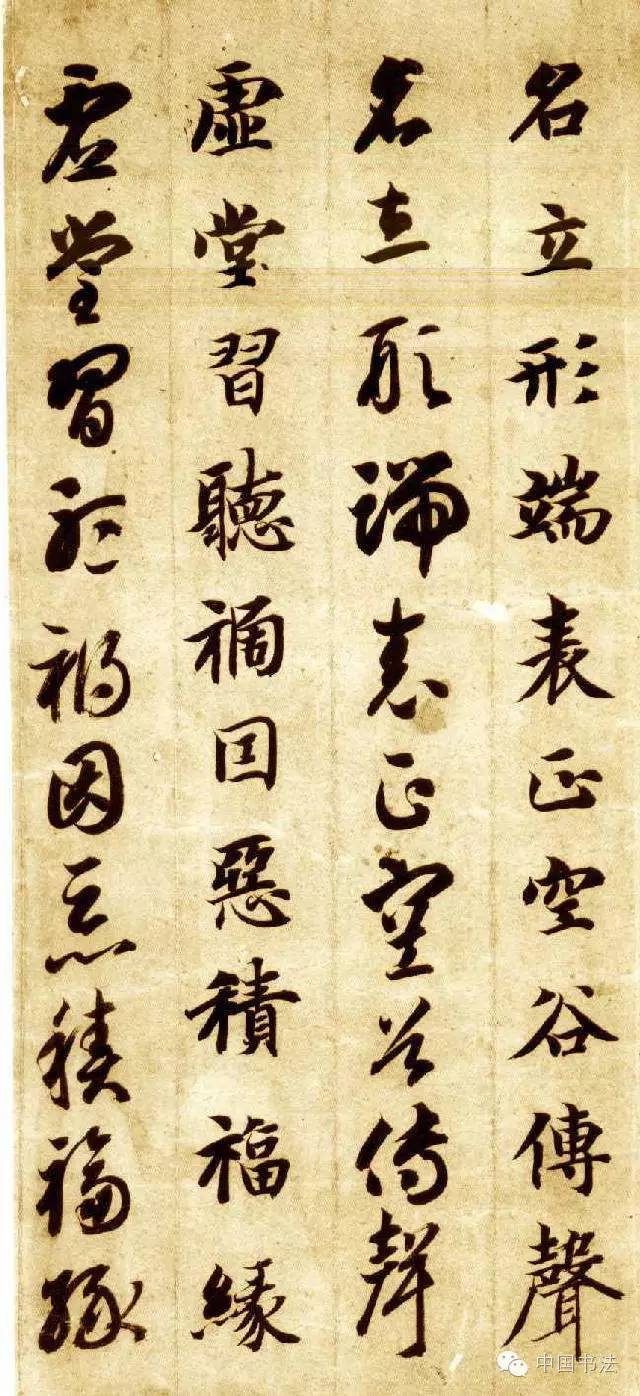 名立形端表正空谷傳聲
名立形端表正空谷傳聲
虛堂習聽禍因惡積福緣
虛堂習聽禍因惡積福緣
中国书法